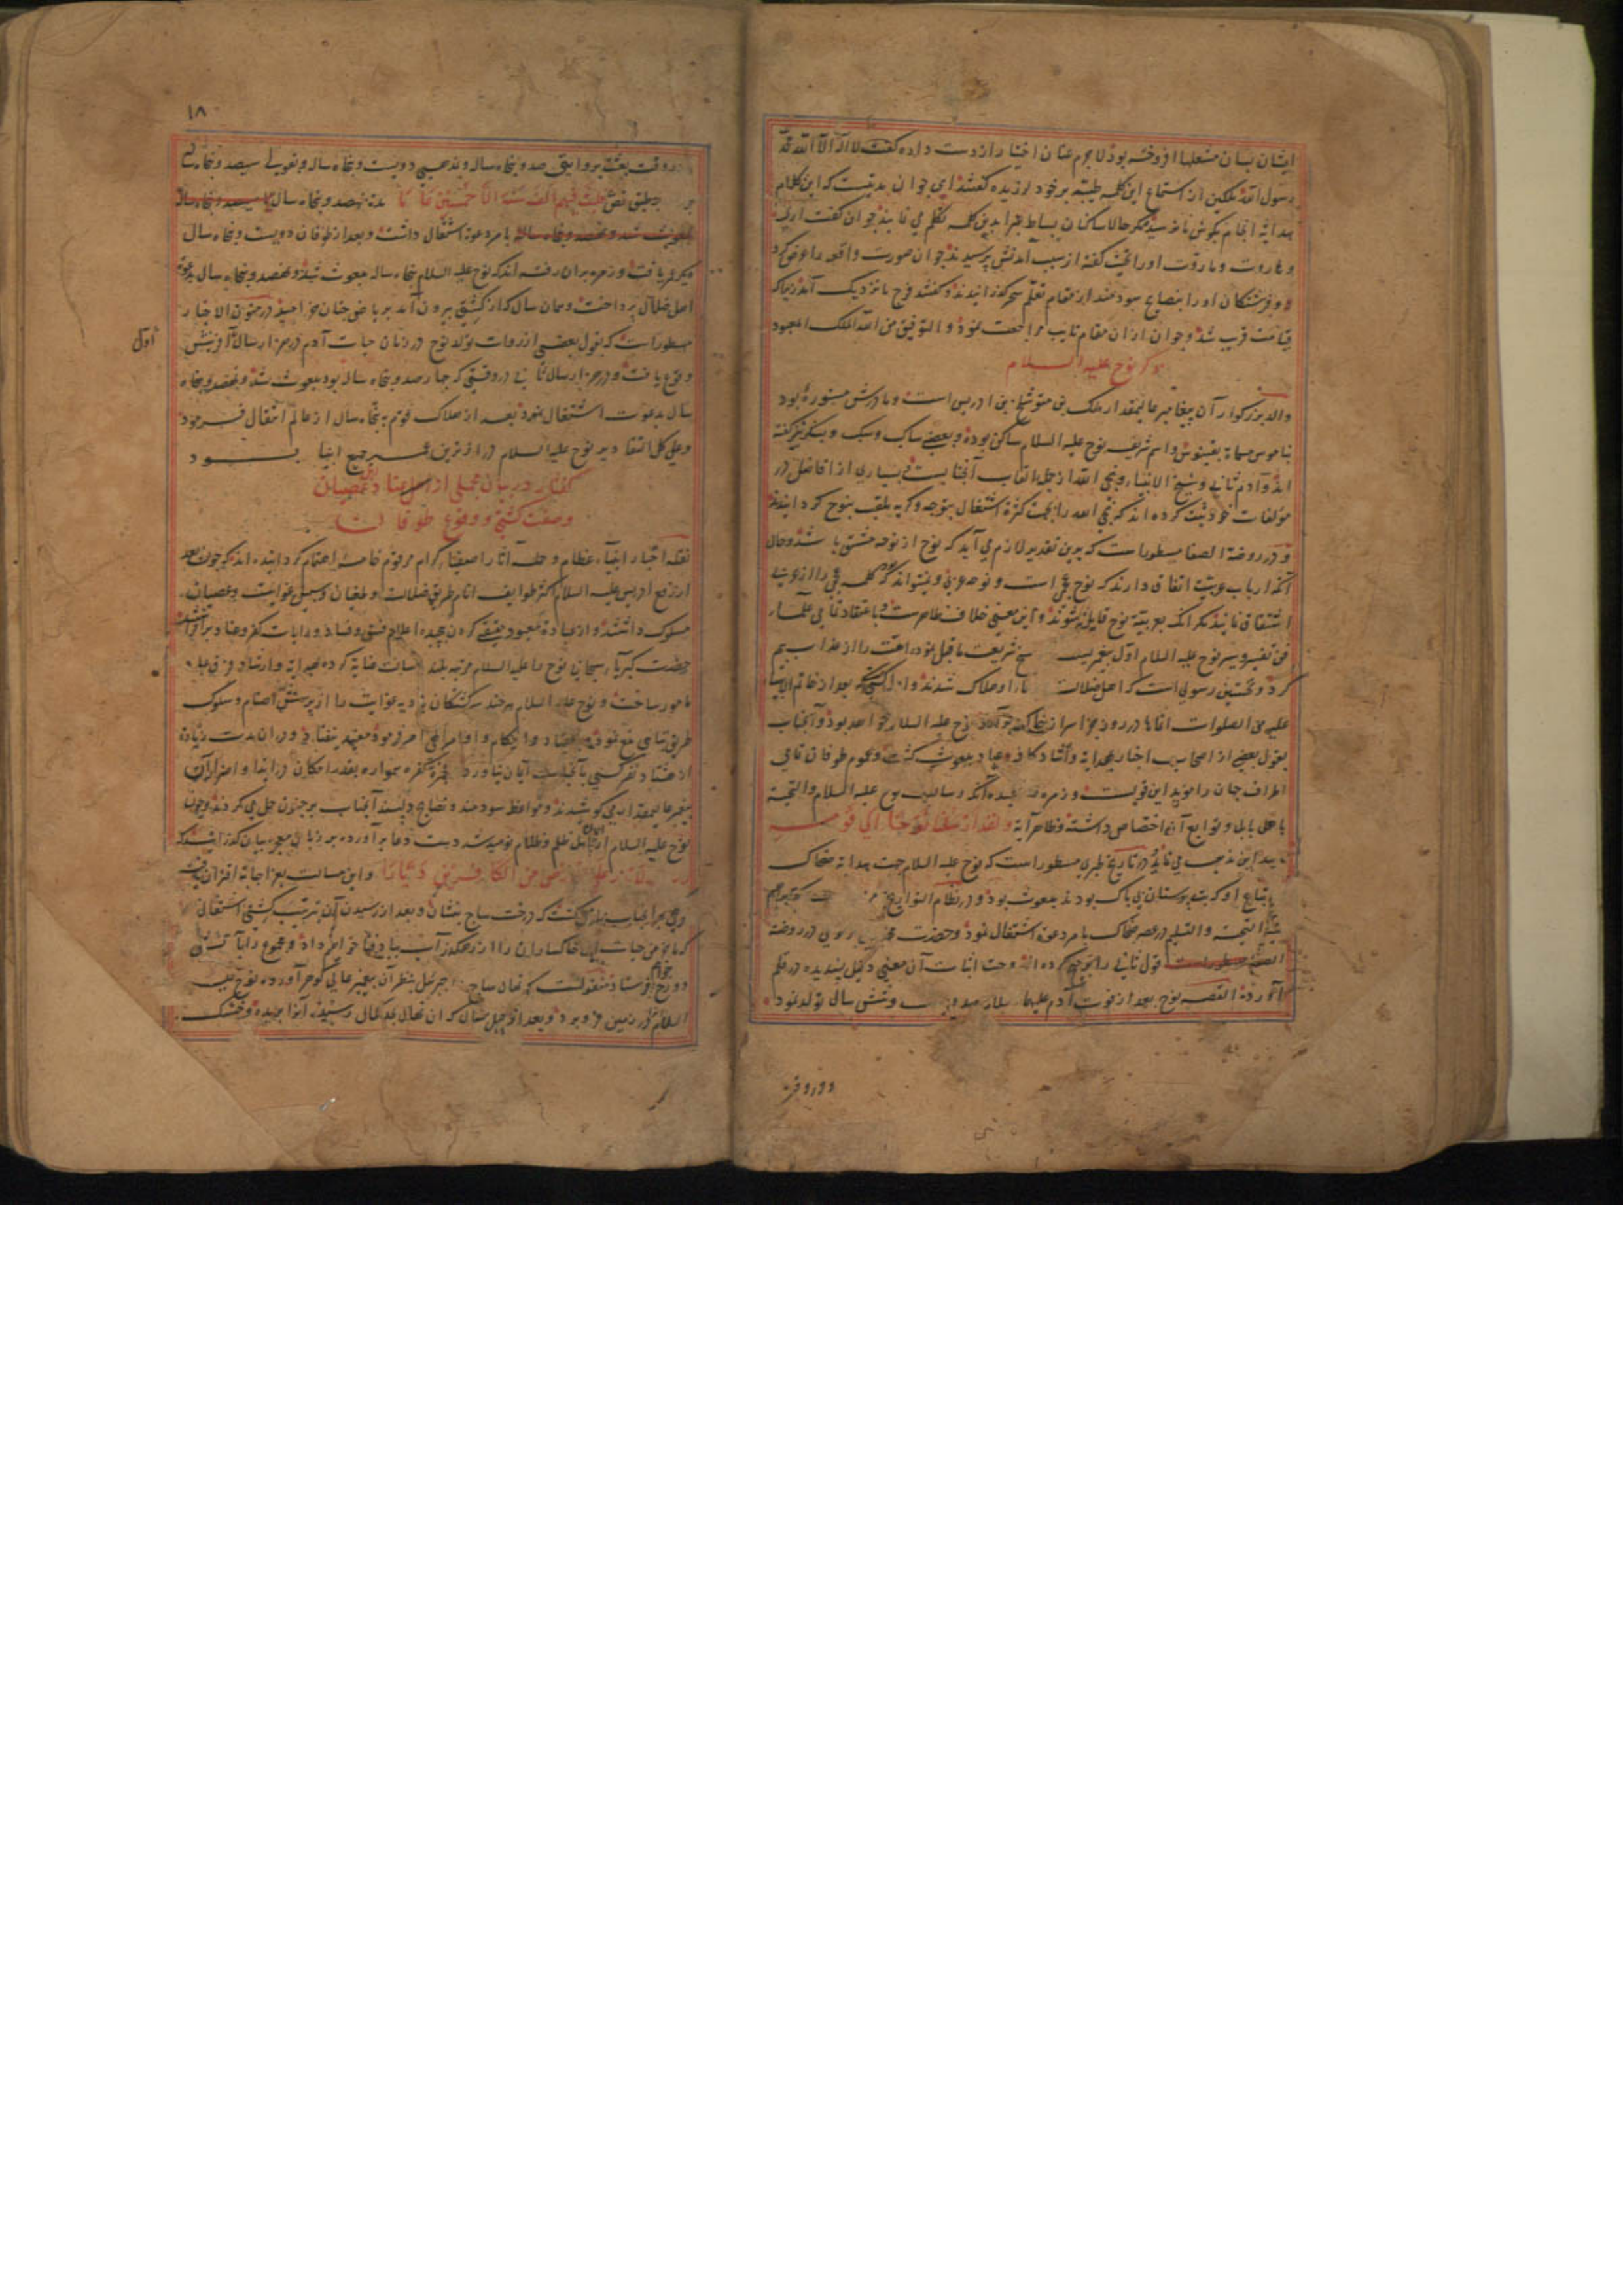 ایشان بسان مشعلها افروخته بود لاجرم عنان اختیار از دست داده گفت لا اله الا الله محمد
رسول الله ملکین از استماع این کلمه طیبه بر خود لرزیده گفتند ای جوان مدتیست که این کلام
هدایه انجام بگوش ما نرسیده مگر حالا ساکنان بساط غبرا بدین کلمه تکلم می نمایند جوان گفت آری
و هاروت و ماروت او را تحیت گفته از سبب آمدنش پرسیدند جوان صورت واقعه را عرض کرد
و فرشتگان او را بنصایح سودمند از مقام تعلم سحر گذرانیدند و گفتند فرج ما نزدیک آمد زیرا که
قیامت قریب شد و جوان از ان مقام تایب مراجعت نمود و التوفیق من الله الملک المعبود
ذکر نوح علیه السلام
والد بزرگوار آن پیغامبر عالیمقدار ملک بن متوشلخ بن ادریس است و مادرش مستوره بود
بناموس مسماة بقینوش و اسم شریف نوح علیه السلام ساکن بوده و بعضی ساک و سک و یشکر نیز گفته
اند و آدم ثانی و شیخ الانبیاء و نجی الله از جمله القاب آنجنابست و بسیاری از افاضل در
مولفات خود ثبت کرده اند که نجی الله را بجهت کثرة اشتغال بنوحه و گریه ملقب بنوح گردانیدند
و در روضة الصفا مسطور است که برین تقدیر لازم می آید که نوح از نوحه مشتق باشد و حال
آنکه ارباب عربیت اتفاق دارند که نوح عجمی است و نوحه عربی و نمیتواند که کلمه عجمی را از عربی
اشتقاق نمایند مگر آنکه بعربیة نوح قایل شوند و این معنی خلاف ظاهر است و باعتقاد تمامی علماء
فن تفسیر و سیر نوح علیه السلام اول پیغمبریست شریعت ما قبل نموده امت را از عذاب بیم
کرد و نخستین رسولی است که اهل ضلالت هلاک شدند و بعد از خاتم الانبیا
علیه من الصلوات در روز جزا نوح علیه السلام خواهد بود و آنجناب
بقول بعضی از اصحاب اخبار بهدایة و ارشاد کافه عباد مبعوث گشته و عموم طوفان تمامی
اطراف جهان را موید این قولست و زمره آنکه رسالت نوح علیه السلام و التحیة
باهل بابل و توابع آن اختصاص داشته و ظاهر آیة ولقد ارسلنا نوحا الی قومه
این مذهب می نماید و در تاریخ طبری مسطور است که نوح علیه السلام جهت هدایة ضحاک
و اتباع او که بت پرستان بی باک بودند مبعوث بود و در نظام التواریخ
التحیة و التسلیم در عصر ضحاک بامر دعوة اشتغال نمود و حضرت در روضة
الصفا قول ثانی را ترجیح کرده اند و جهت اثبات آن معنی دلیل پسندیده در قلم
آورده القصه نوح بعد از فوت آدم علیهما السلام و شش سال تولد نمود
و در وقت
۱۸
در وقت بعثة بروایتی صد و پنجاه ساله و مذهبی دویست و پنجاه ساله و بقولی سیصد و پنجاه
بمنطوق نص فلبث فیهم الف سنة الا خمسین عاما مدة نهصد و پنجاه سال
بامر دعوة اشتغال داشت و بعد از طوفان دویست و پنجاه سال
دیگر عمر یافت و زمره بران رفته اند که نوح علیه السلام پنجاه ساله مبعوث شد و نهصد و پنجاه سال بدعوة
اهل ضلال پرداخت و همان سال که از کشتی بیرون آمد بریاض جنان خرامید و در متون الاخبار
مسطور است که بقول بعضی از روات تولد نوح در زمان حیات آدم در هزار سال آفرینش
اول
وقوع یافت و در هزار سال ثانی در وقتی که چهار صد و پنجاه ساله بود مبعوث شد و نهصد و پنجاه
سال بدعوت اشتغال نمود بعد از هلاک قوم پنجاه سال از عالم انتقال فرمود
و علی کل التقادیر نوح علیه السلام درازترین عمر جمیع انبیا بود
گفتار در بیان مجملی از اهل عناد و عصیان
وصفت کشتی و وقوع طوفان
نقله اخبار انبیاء عظام و حمله آثار اصفیاء کرام مرقوم خامه اهتمام گردانیده اند که چون بعد
از رفع ادریس علیه السلام اکثر طوایف انام طریق ضلالت و طغیان و سبیل غوایت و عصیان
مسلوک داشتند و از عبادة معبود حقیقی گردن پیچیده اعلام فسق و فساد و رایات کفر و عناد برافراشتند
حضرت کبریاء سبحانی نوح را علیه السلام مرتبه بلند رسالت عنایة کرده بهدایة و ارشاد فرق عباد
مامور ساخت و نوح علیه السلام هر چند سرگشتگان بادیه غوایت را از پرستش اصنام و سلوک
طریق تباهی منع نمود احکام و اوامر الهی امر فرمود مفید نیفتاد و در ان مدت زیادة
از هشتاد نفر کسی بآنجناب ایمان نیاورد و فجره کفره همواره بقدر امکان در ایذا و اضرار آن
پیغمبر عالیمقدار می کوشیدند و مواعظ سودمند و نصایح دلپسند آنجناب بر جنون حمل می کردند و چون
نوح علیه السلام از ایمان اهل ظلم و ظلام نومید شد دست دعا برآورده بر زبان معجز بیان گذرانید که
رب لا تذر علی الارض من الکافرین دیارا و این مسالت بعز اجابة اقتران یافت
وحی بر آنجناب نازل گشت که درخت ساج بنشان و بعد از رسیدن آن بترتیب کشتی اشتغال
که ما خرمن حیات این خاکساران را از رهگذر آب بباد فنا خواهیم داد و مجموع را بآتش
دوزخ خواهیم فرستاد منقولست که نهال ساج را جبرئیل بنظر آن پیغمبر عالی گوهر آورده نوح علیه
السلام در زمین فرو برد و بعد از چهل سال که آن نهال بحد کمال رسید آنرا بریده و خشک